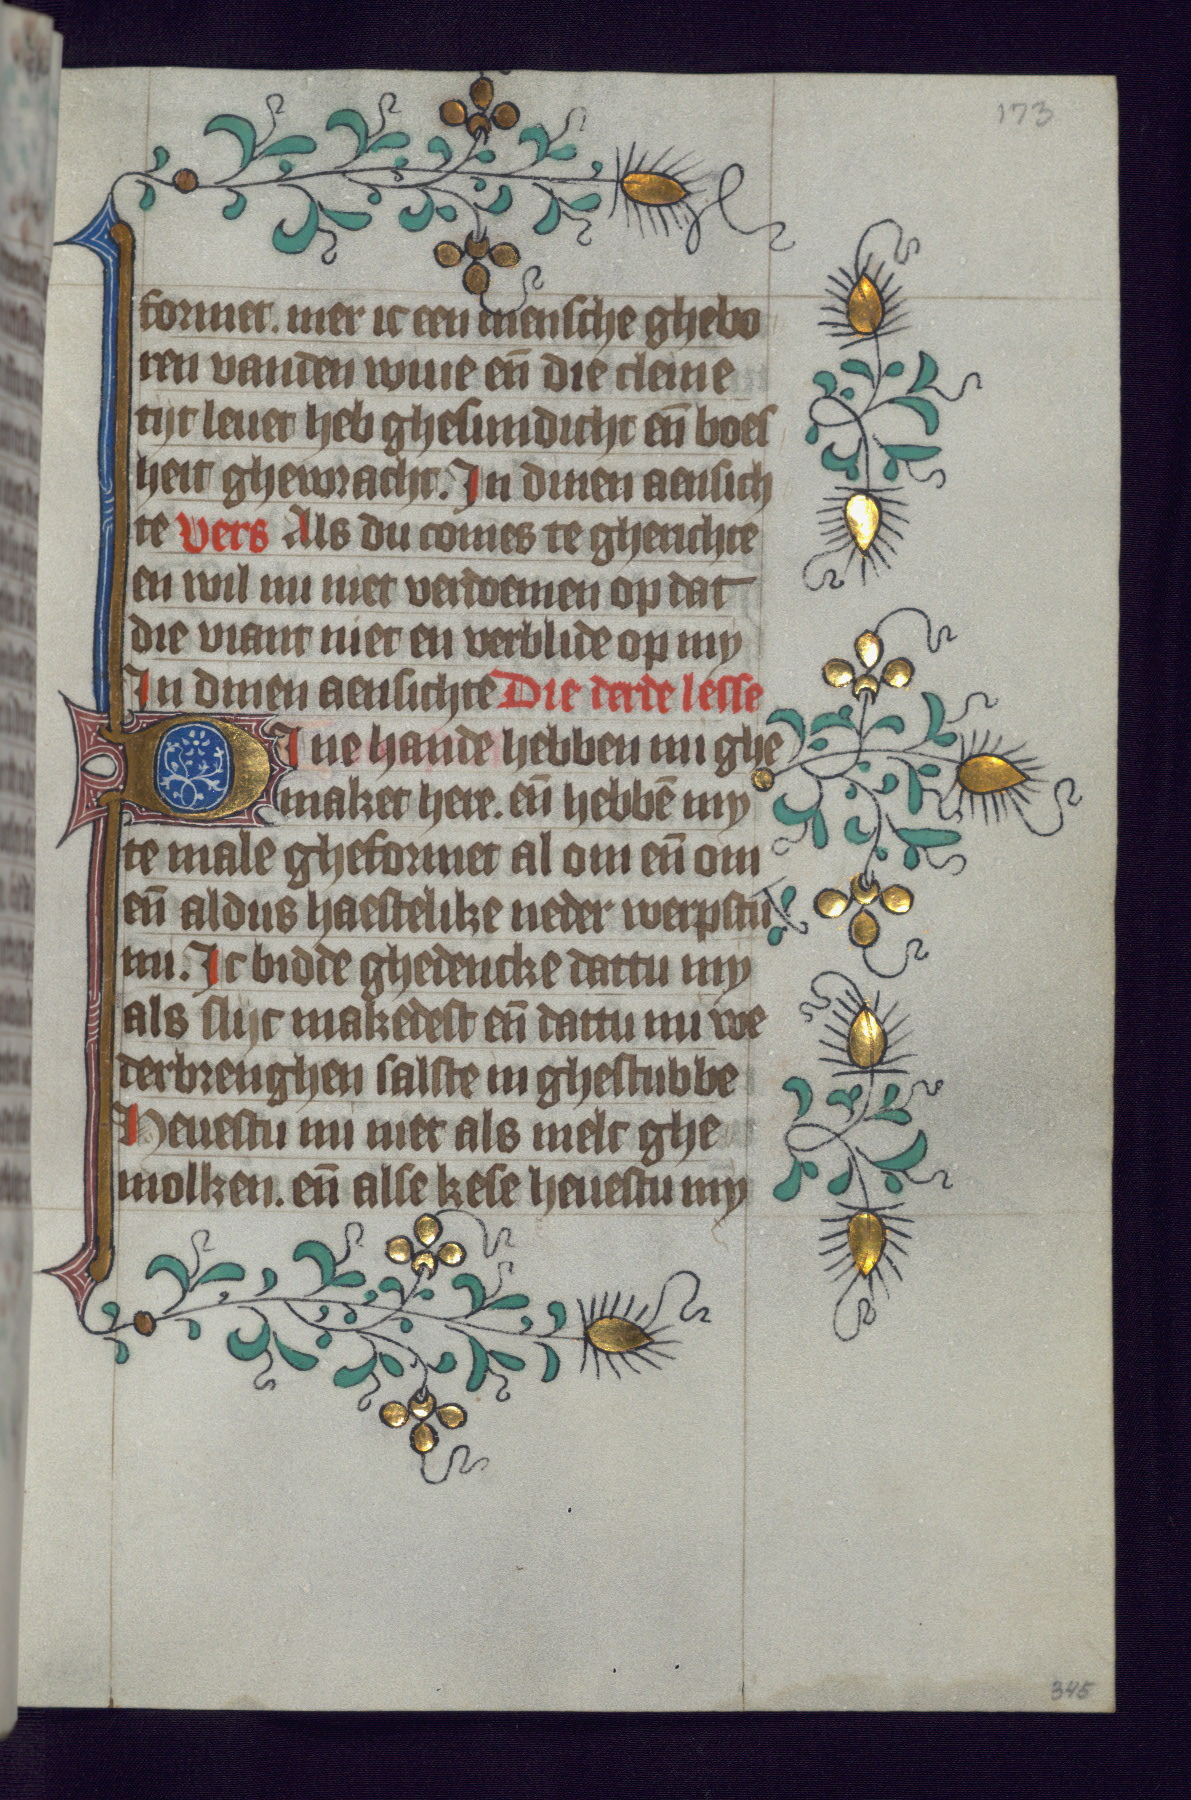 173
formet. mer ic een mensche ghebo
ren vanden wiue en̄ die cleine
tijt leuet heb ghesundicht en̄ boes
heit ghewracht. In dinen aensich
te Vers Als du comes te gherichte
en wil mi niet verdoemen op dat
die viant niet en verblide op my
In dinen aensichte Die derde lesse
Dine hande hebben mi ghe
maket here. en̄ hebbē my
te male gheformet al om en̄ om
en̄ aldus haestelike neder werpstu
mi. Ic bidde ghedencke dattu my
als slijc makedest en̄ dattu mi we
derbrenghen salste in ghestubbe
Heuestu mi niet als melc ghe
molken. en̄ alse kese heuestu my
345